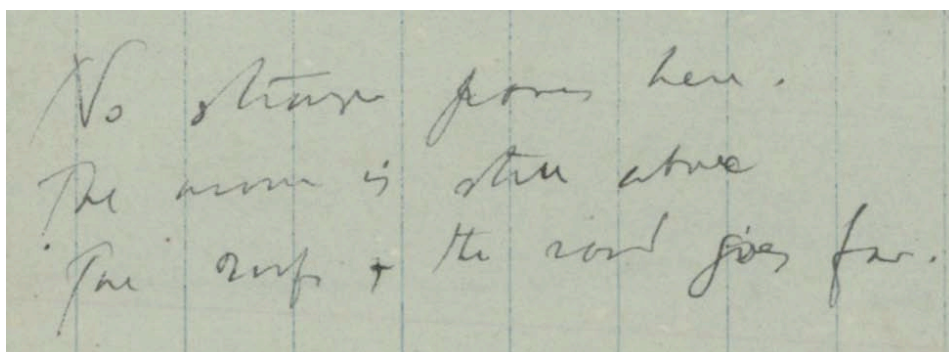 No strange                here.
The moon is still above
The roofs + the road goes far.